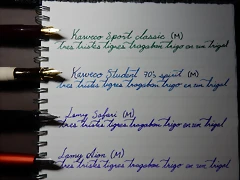 Kaweco Sport classic (M)
tres tristes tigres tragaban trigo en un trigal
Kaweco Student 70's spirit (M)
tres tristes tigres tragaban trigo en un trigal
Lamy Safari (M)
tres tristes tigres tragaban trigo en un trigal
Lamy Aion (M)
tres tristes tigres tragaban trigo en un trigal